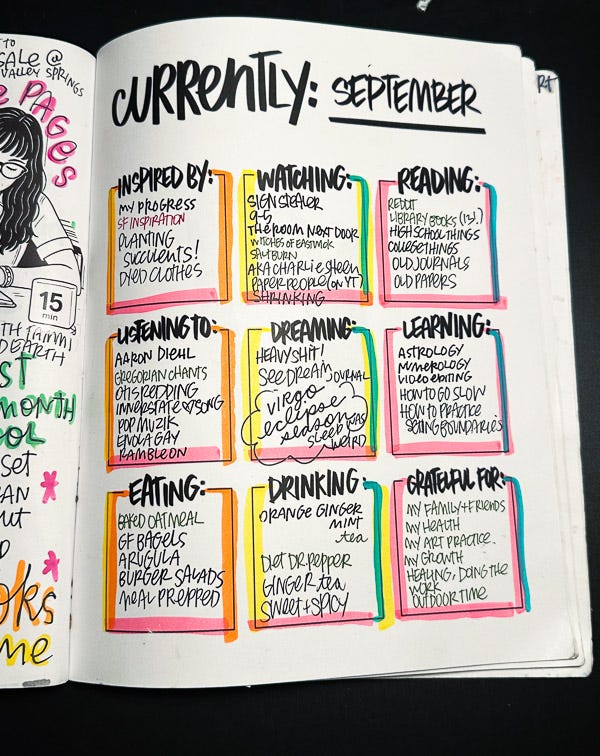 SALE @
VALLEY SPRINGS
PAGES
15
min
EARTH
MONTH
SET
ME
CURRENTLY: SEPTEMBER
INSPIRED BY:
MY PROGRESS
SF INSPIRATION
PLANTING
SUCCULENTS!
DYED CLOTHES
WATCHING:
SIGN STEALER
9-5
THE ROOM NEXT DOOR
WITCHES OF EASTWICK
SALTBURN
AKA CHARLIE SHEEN
PAPER PEOPLE (ON YT)
SHRINKING
READING:
REDDIT
LIBRARY BOOKS (13!)
HIGH SCHOOL THINGS
COLLEGE THINGS
OLD JOURNALS
OLD PAPERS
LISTENING TO:
AARON DIEHL
GREGORIAN CHANTS
OTIS REDDING
INNERSTATE ♡ SONG
POP MUZIK
ENOLA GAY
RAMBLE ON
DREAMING:
HEAVY SHIT!
SEE DREAM JOURNAL
VIRGO
ECLIPSE
SEASON
SLEEP WAS
WEIRD
LEARNING:
ASTROLOGY
NUMEROLOGY
VIDEO EDITING
HOW TO GO SLOW
HOW TO PRACTICE
SETTING BOUNDARIES
EATING:
BAKED OATMEAL
GF BAGELS
ARUGULA
BURGER SALADS
MEAL PREPPED
DRINKING
ORANGE GINGER
MINT
tea
DIET DR. PEPPER
GINGER tea
SWEET + SPICY
GRATEFUL FOR:
MY FAMILY + FRIENDS
MY HEALTH
MY ART PRACTICE
MY GROWTH
HEALING, DOING THE
WORK
OUTDOOR TIME